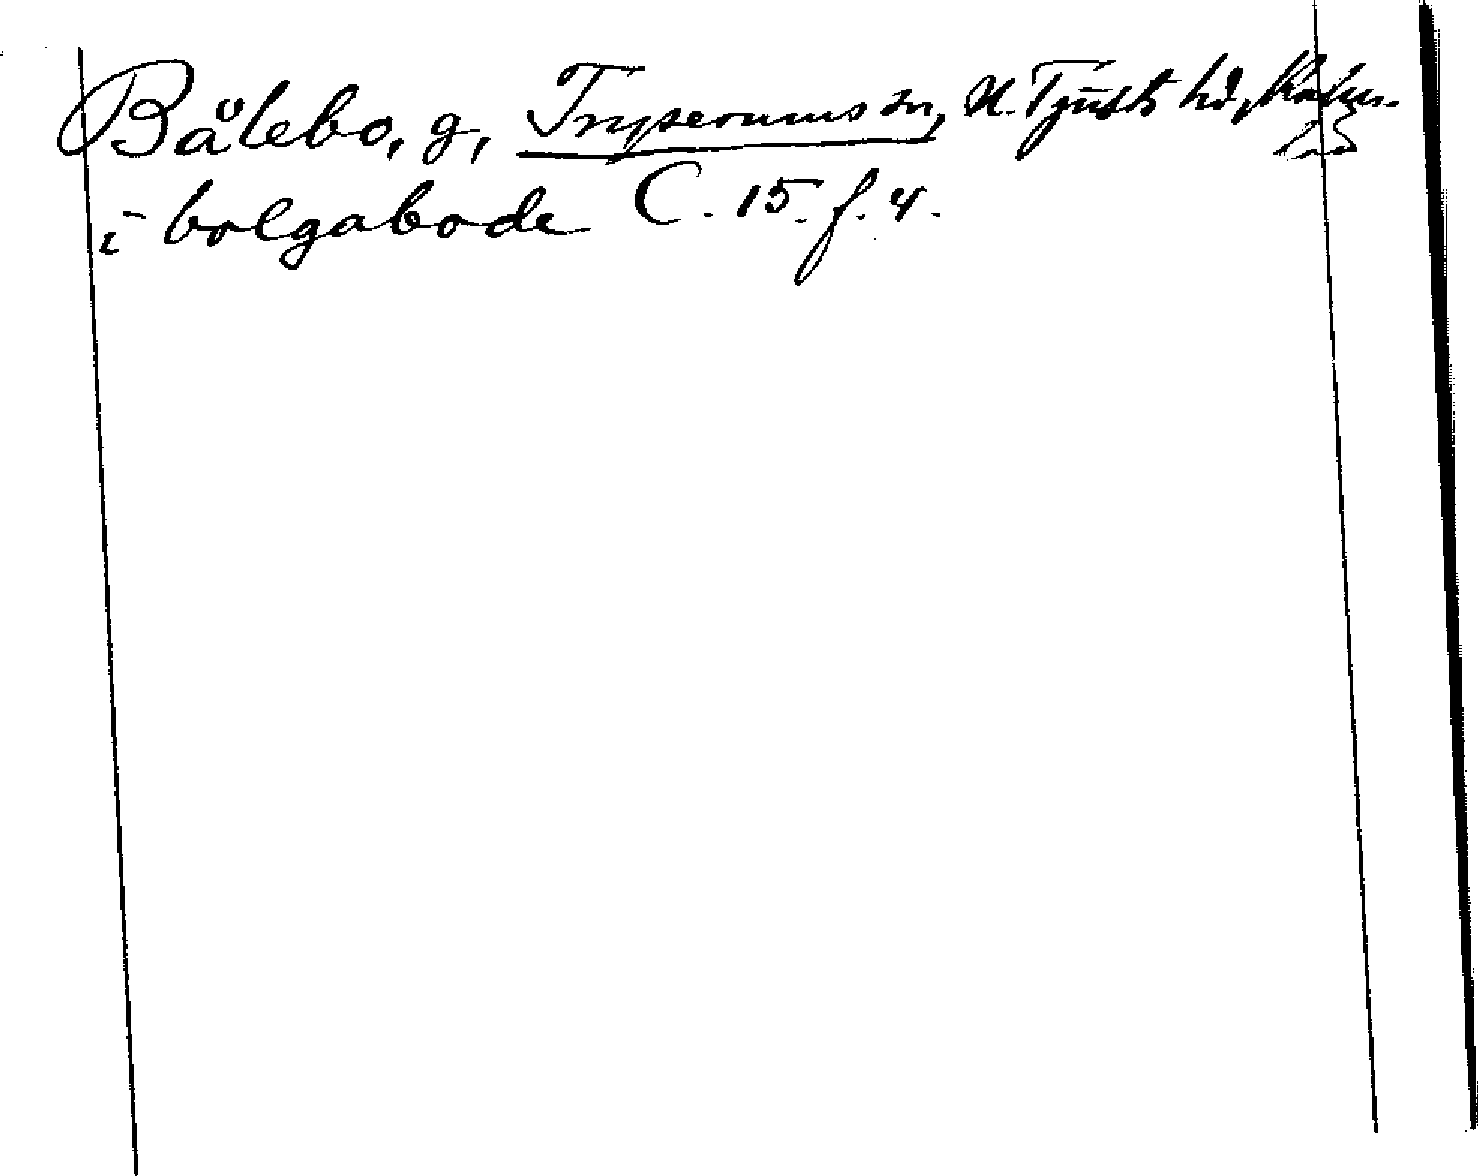 Bålebo, g, Tryserums sn, N. Tjusts hd, Kalm.
län
i bolgabode C. 15. f. 4.